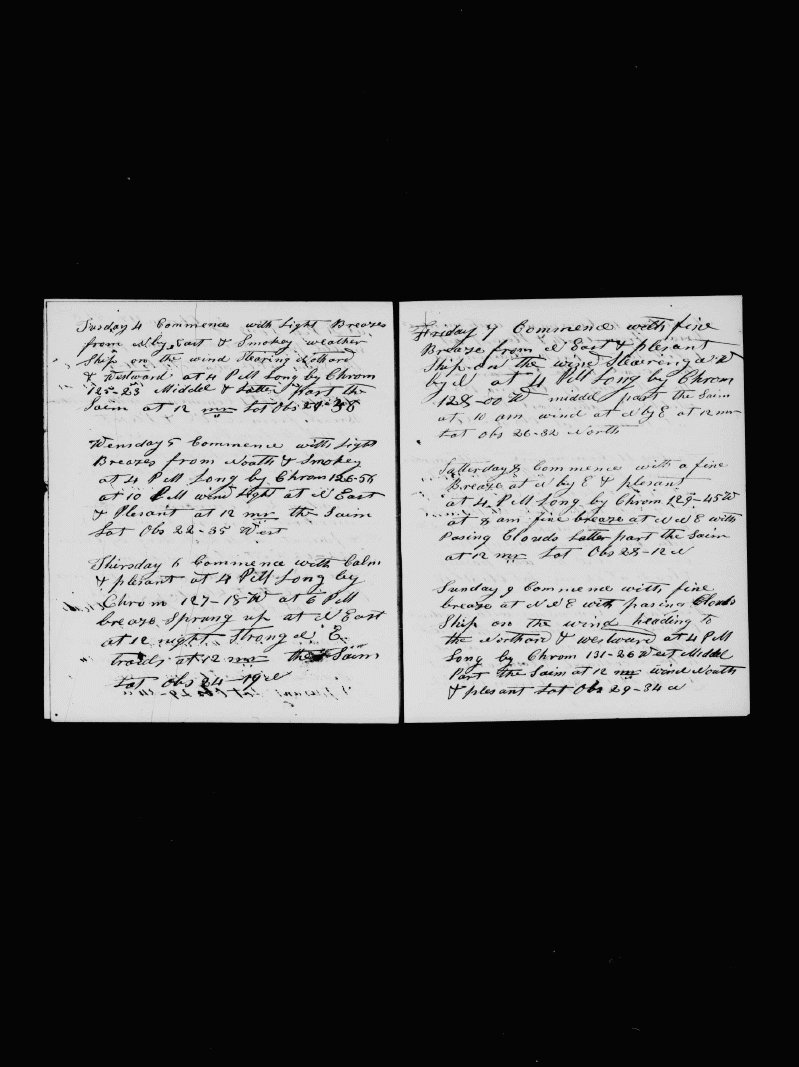 Tusday 4 Commence with Light Breazes
from N by East & Smokey weather
Ship on the wind Stearing Nothard
& Westward at 4 PM Long by Chrom
125-23 Middel & Latter part the
Saim at 12 mr Lat Obs
Wensday 5 Commence with Light
Breazes from North & Smokey
at 4 PM Long by Chrom 126-56
at 10 PM wind light at N East
& Plesant at 12 mr the Saim
Lat Obs 22-35 West
Thirsday 6 Commence with Calm
& plesant at 4 PM Long by
Chrom 127-18 W at 6 PM
breaze Sprung up at N East
at 12 night Strong N E
traids at 12 mr the Saim
Lat Obs 24-19 N
Friday 7 Commence with fine
Breaze from N East & Plesant
Ship on the wind Stearing N W
by N at 4 PM Long by Chrom
128-00 W middel part the Saim
at 10 am wind at N by E at 12 mr
Lat obs 26-32 North
Satterday 8 Commence with a fine
Breaze at N by E & plesant
at 4 PM Long by Chrom 129-45 W
at 8 am fine breaze at N N E with
Pasing Clouds Latter part the Saim
at 12 mr Lat Obs 28-12 N
Sunday 9 Commence with fine
breaze at N N E with pasing Clouds
Ship on the wind heading to
the Northard & westward at 4 PM
Long by Chrom 131-26 West Middel
Part the Saim at 12 mr wind North
& plesant Lat Obs 29-34 N